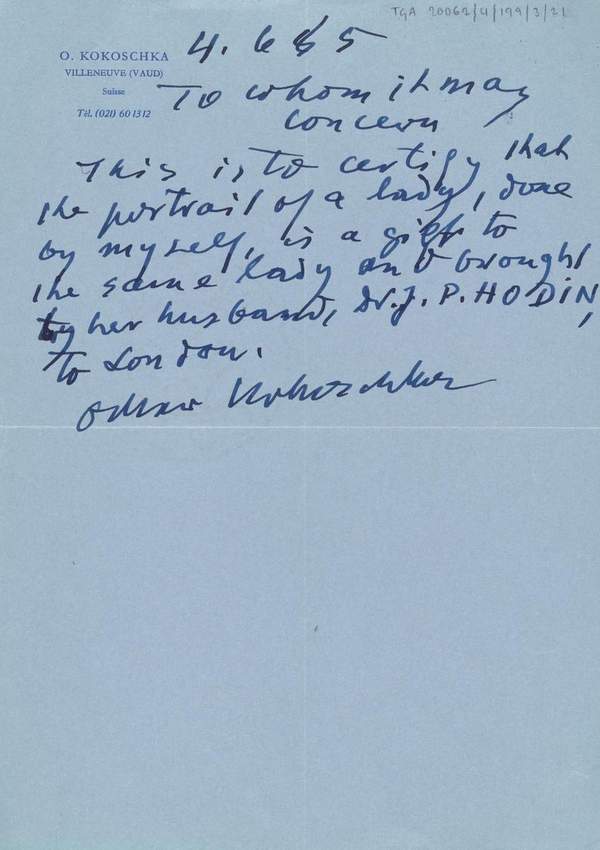 TGA 20062/4/199/3/21
O. KOKOSCHKA
VILLENEUVE (VAUD)
Suisse
Tél. (021) 60 13 12
4. 6 65
To whom it may
concern
This is to certify that
the portrait of a lady, done
by myself, is a gift to
the same lady and brought
by her husband, Dr. J. P. HODIN,
to London.
Oskar Kokoschka